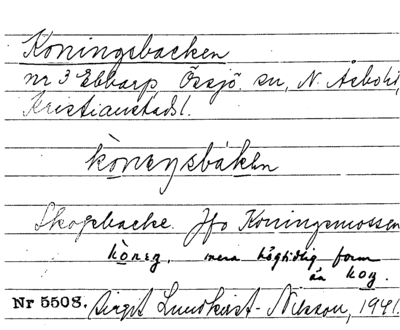 Koningsbacken
nr 3 Ebbarp Össjö sn, N. Åsbohd,
Kristianstadsl.
kòneŋsbákan
Skogsbacke. Jfr Koningsmossen
kòneŋ. mera högtidlig form
än koŋ.
Nr 5508. Birgit Lundkvist-Nilsson, 1941.